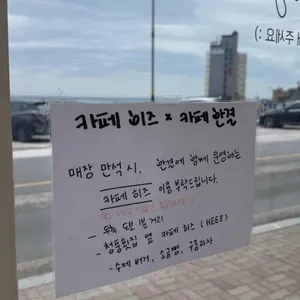 카페 히즈 x 카페 한결
매장 만석 시, 한결에 함께 운영하는
카페 히즈 이용 부탁드립니다.
- 우측 도보 1분 거리
- 청풍횟집 옆 카페 히즈 (HEEZ)
- 수제 버거, 소금빵, 구움과자
세요 :)